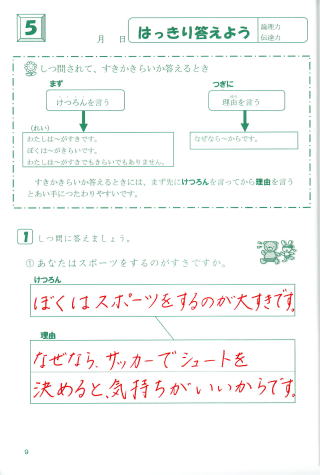 5
月 日
はっきり答えよう
論理力
伝達力
しつ問されて、すきかきらいか答えるとき
まず
つぎに
けつろんを言う
理由を言う
(れい)
わたしは～がすきです。
ぼくは～がきらいです。
わたしは～がすきでもきらいでもありません。
なぜなら～からです。
すきかきらいか答えるときには、まず先にけつろんを言ってから理由を言う
とあい手につたわりやすいです。
1 しつ問に答えましょう。
①あなたはスポーツをするのがすきですか。
けつろん
ぼくはスポーツをするのが大すきです。
理由
なぜなら、サッカーでシュートを
決めると、気持ちがいいからです。
9